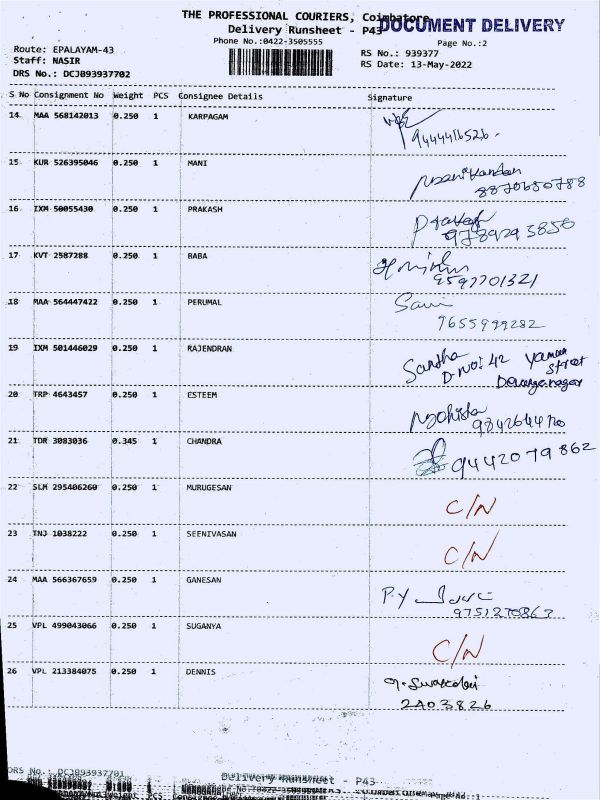 THE PROFESSIONAL COURIERS, Coimbatore
DOCUMENT DELIVERY
Delivery Runsheet - P43
Phone No.:0422-3505555
Page No.:2
Route: EPALAYAM-43
Staff: NASIR
DRS No.: DCJ893937702
RS No.: 939377
RS Date: 13-May-2022
S No Consignment No Weight PCS Consignee Details Signature
14 MAA 568142013 0.250 1 KARPAGAM
9444416526.
15 KUR 526395046 0.250 1 MANI Manikandan
8870650788
16 IXM 50055430 0.250 1 PRAKASH Prakash
9789293850
17 KVT 2587288 0.250 1 BABA
9597701321
18 MAA 564447422 0.250 1 PERUMAL
9655999282
19 IXM 501446029 0.250 1 RAJENDRAN Santha
D.No: 42
street
20 TRP 4643457 0.250 1 ESTEEM
21 TDR 3083036 0.345 1 CHANDRA 9442079862
22 SLM 295406260 0.250 1 MURUGESAN C/N
23 TNJ 1038222 0.250 1 SEENIVASAN C/N
24 MAA 566367659 0.250 1 GANESAN P.Y
9751270863
25 VPL 499043066 0.250 1 SUGANYA C/N
26 VPL 213384075 0.250 1 DENNIS
2403826
DRS No.: DCJ893937701
Delivery Runsheet - P43